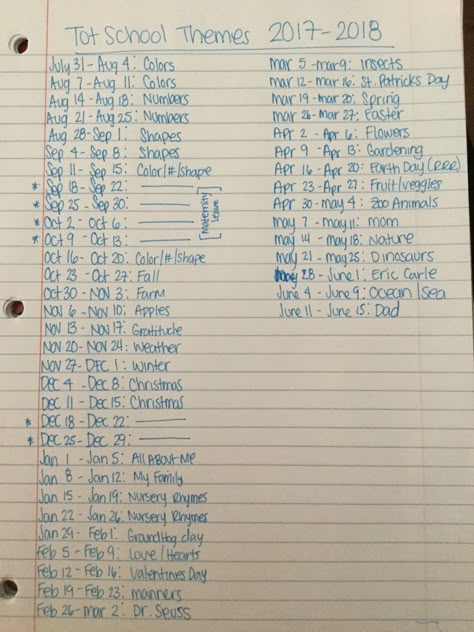 Tot School Themes 2017-2018
July 31 - Aug 4: Colors
Aug 7 - Aug 11: Colors
Aug 14 - Aug 18: Numbers
Aug 21 - Aug 25: Numbers
Aug 28 - Sep 1: Shapes
Sep 4 - Sep 8: Shapes
Sep 11 - Sep 15: Color/#/shape
* Sep 18 - Sep 22: ———
* Sep 25 - Sep 30: ———
* Oct 2 - Oct 6: ———
* Oct 9 - Oct 13: ———
Maternity Leave
Oct 16 - Oct 20: Color/#/shape
Oct 23 - Oct 27: Fall
Oct 30 - Nov 3: Farm
Nov 6 - Nov 10: Apples
Nov 13 - Nov 17: Gratitude
Nov 20 - Nov 24: Weather
Nov 27 - Dec 1: Winter
Dec 4 - Dec 8: Christmas
Dec 11 - Dec 15: Christmas
* Dec 18 - Dec 22: ———
* Dec 25 - Dec 29: ———
Jan 1 - Jan 5: All About Me
Jan 8 - Jan 12: My Family
Jan 15 - Jan 19: Nursery Rhymes
Jan 22 - Jan 26: Nursery Rhymes
Jan 29 - Feb 1: Groundhog day
Feb 5 - Feb 9: Love/Hearts
Feb 12 - Feb 16: Valentines Day
Feb 19 - Feb 23: manners
Feb 26 - mar 2: Dr. Seuss
mar 5 - mar 9: Insects
mar 12 - mar 16: St. Patricks Day
mar 19 - mar 20: Spring
mar 26 - mar 27: Easter
Apr 2 - Apr 6: Flowers
Apr 9 - Apr 13: Gardening
Apr 16 - Apr 20: Earth Day (RRR)
Apr 23 - Apr 27: Fruit/veggies
Apr 30 - may 4: Zoo Animals
may 7 - may 11: mom
may 14 - may 18: Nature
may 21 - may 25: Dinosaurs
may 28 - June 1: Eric Carle
June 4 - June 9: Ocean/Sea
June 11 - June 15: Dad